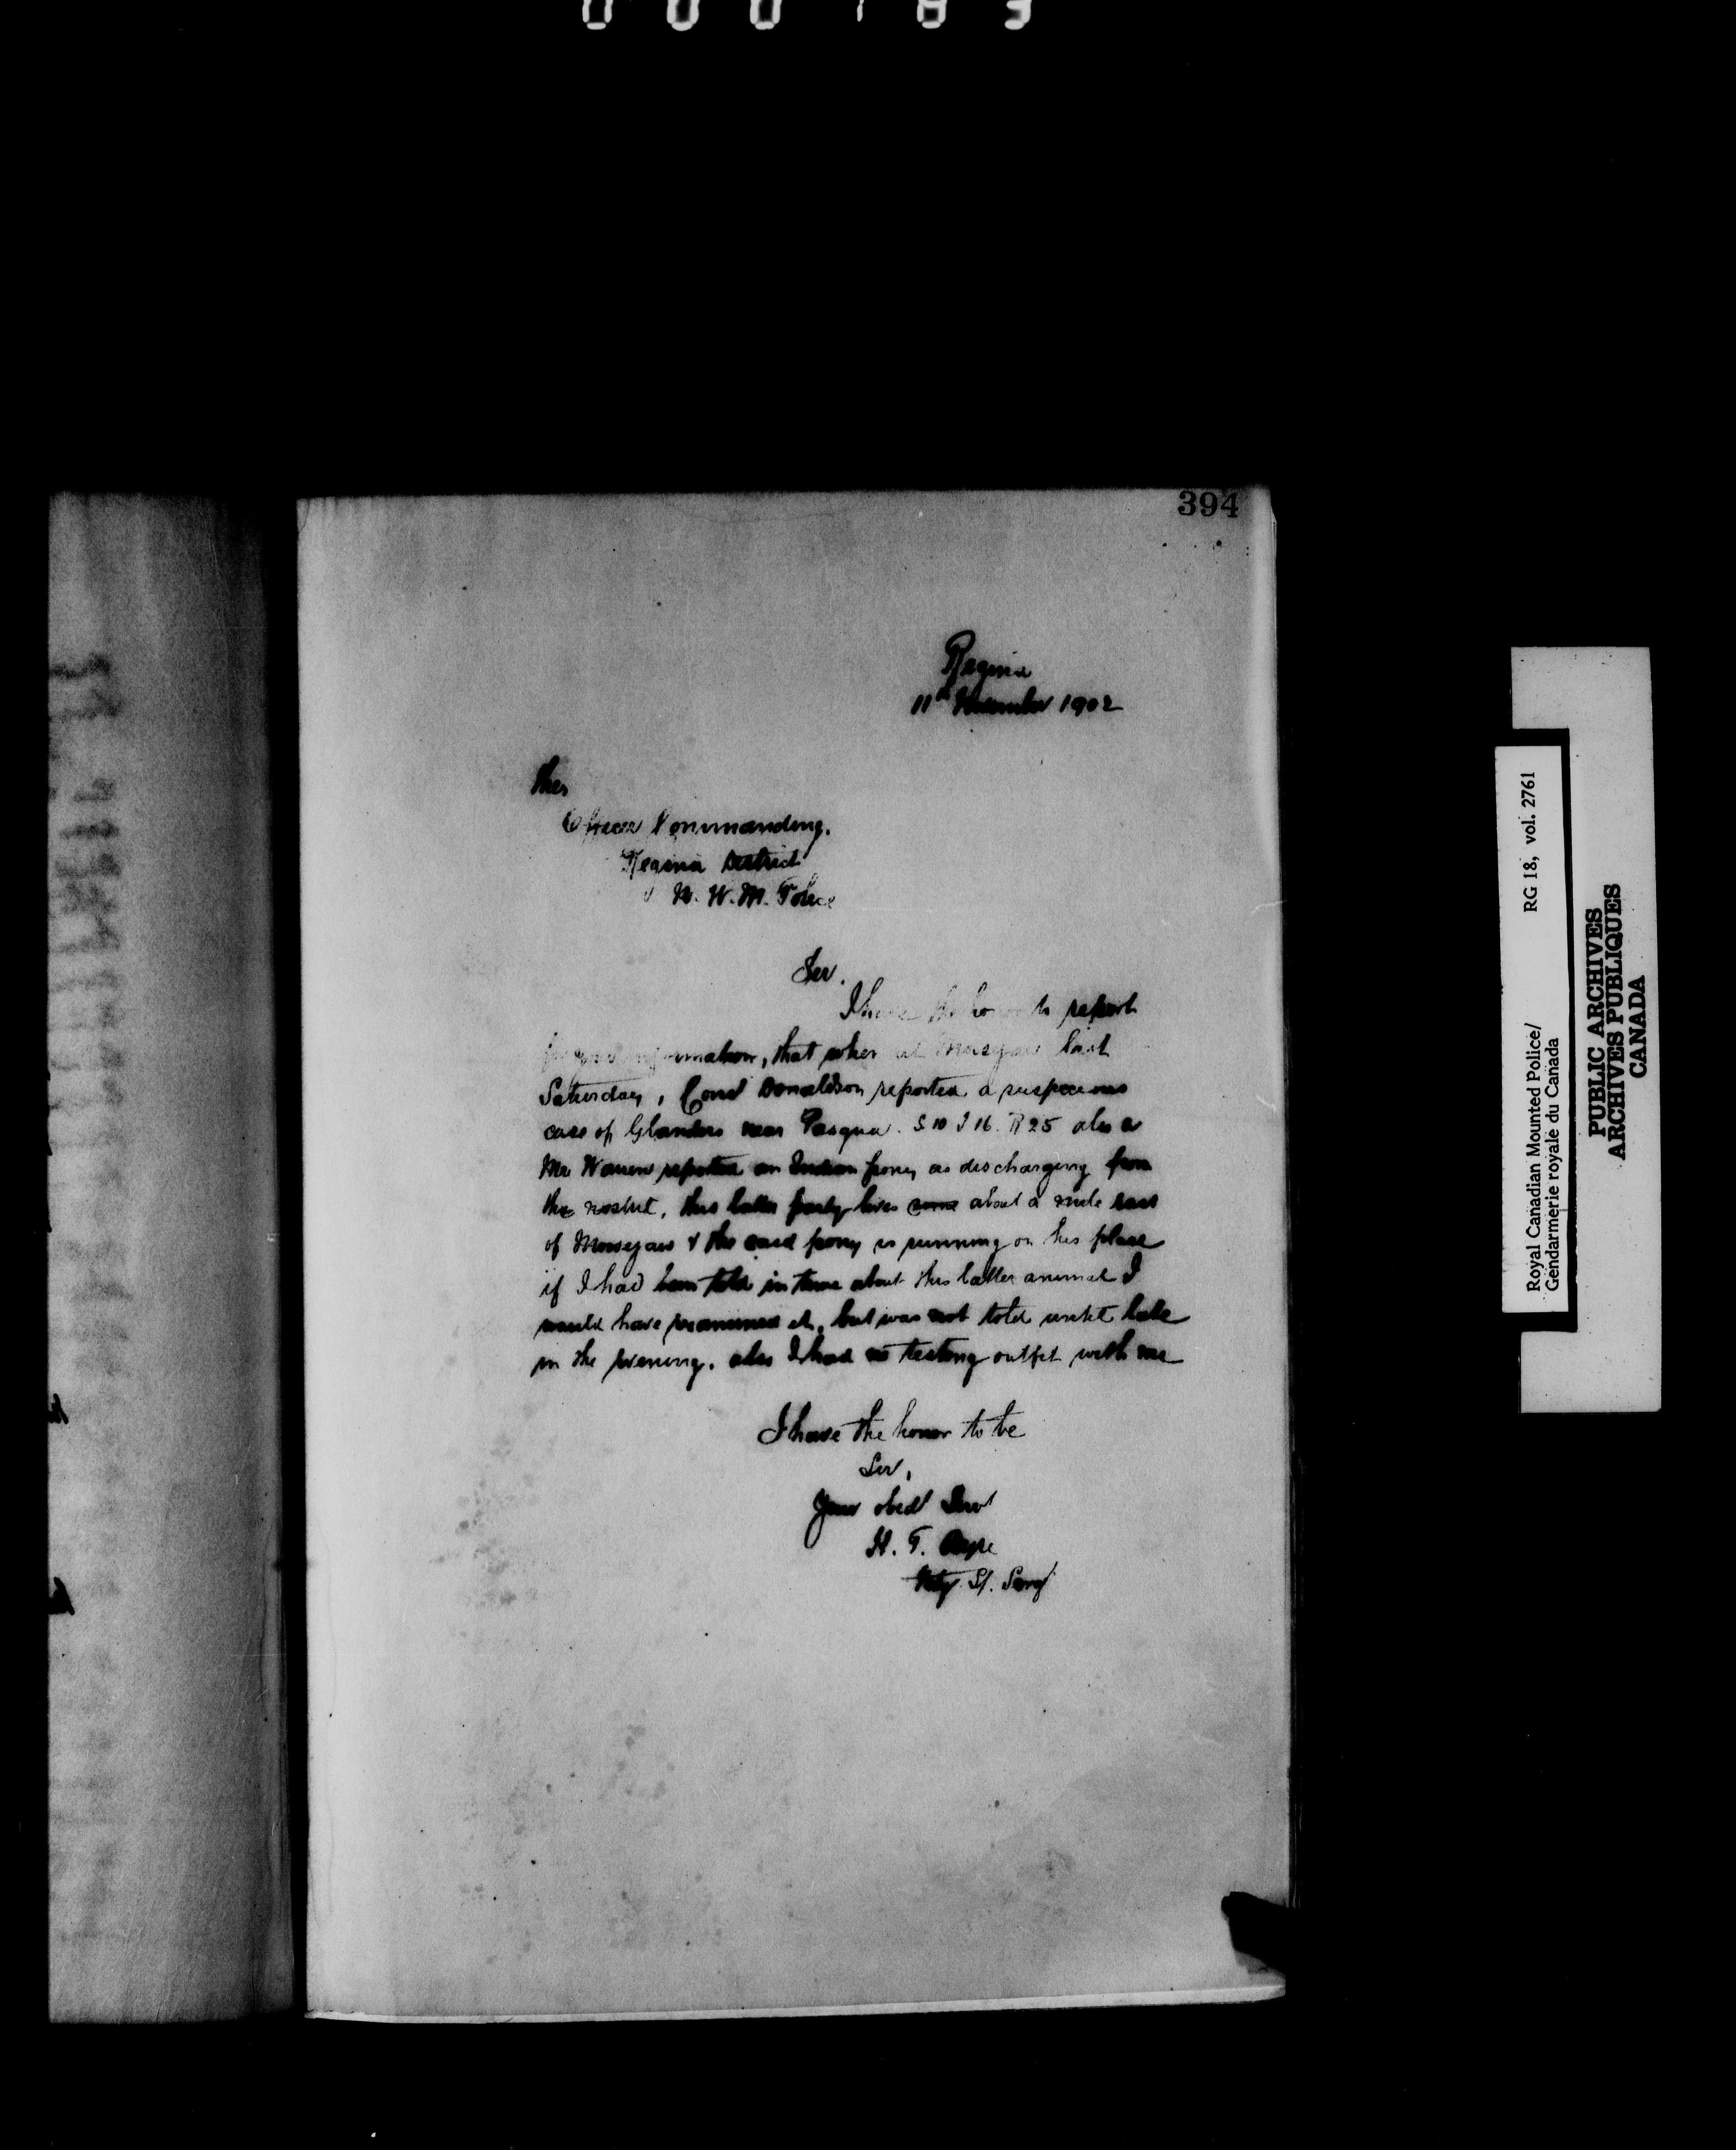 394
Regina
11th November 1902
The
Officer Commanding.
Regina District
N. W. M. Police
Sir.
I have the honor to report
for your information, that when at Moosejaw last
Saturday, Const Donaldson reported a suspecious
case of Glanders near Pasqua. S 10 T 16. R 25 also a
Mr Warren reported an Indian pony as discharging from
the nostril, this latter party lives some about a mile east
of Moosejaw & the said pony is running on his place
if I had been told in time about this latter animal I
would have examined it, but was not told until late
in the evening. also I had no testing outfit with me
I have the honor to be
Sir,
Your obed Servt
H. T. Ayre
Vety St. Sergt
Royal Canadian Mounted Police/ RG 18, vol. 2761
Gendarmerie royale du Canada
PUBLIC ARCHIVES
ARCHIVES PUBLIQUES
CANADA